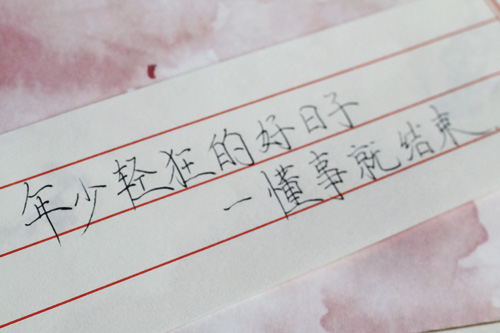 年少轻狂的好日子
一懂事就结束